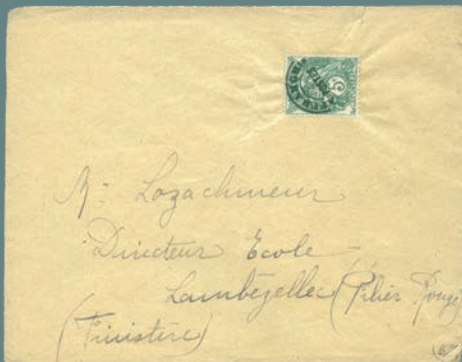 Mr Lozachmeur
Directeur Ecole
Lambézellec (Pilier Rouge)
(Finistère)
5